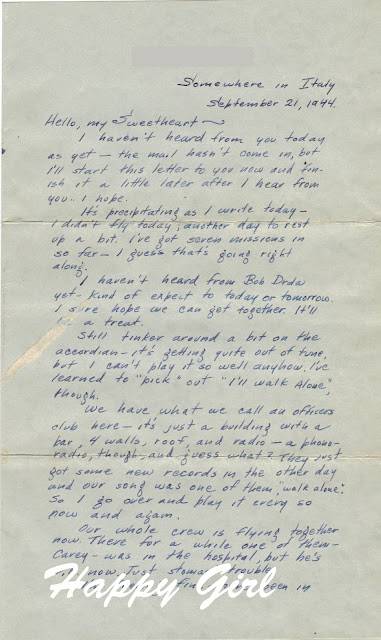 Somewhere in Italy
September 21, 1944.
Hello, my Sweetheart ~
I haven't heard from you today
as yet — the mail hasn't come in, but
I'll start this letter to you now and fin-
ish it a little later after I hear from
you.. I hope.
It's precipitating as I write today —
I didn't fly today; another day to rest
up a bit. I've got seven missions in
so far — I guess that's going right
along.
I haven't heard from Bob Drda
yet — kind of expect to today or tomorrow.
I sure hope we can get together. It'll
be a treat.
Still tinker around a bit on the
accordian — it's getting quite out of tune,
but I can't play it so well anyhow. I've
learned to "pick" out "I'll Walk Alone",
though.
We have what we call an officers
club here — it's just a building with a
bar, 4 walls, roof, and radio — a phono-
radio, though, and guess what? They just
got some new records in the other day
and our song was one of them, "walk alone".
So I go over and play it every so
now and again.
Our whole crew is flying together
now. There for a while one of them —
Carey — was in the hospital, but he's
now. Just stomach trouble.
in
Happy Girl